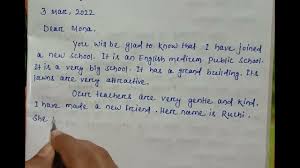 3 Mar, 2022
Dear Mona,
You will be glad to know that I have joined
a new school. It is an English medium Public School.
It is a very big school. It has a grand building. Its
lawns are very attractive.
Our teachers are very gentle and kind.
I have made a new friend. Her name is Ruthi.
She